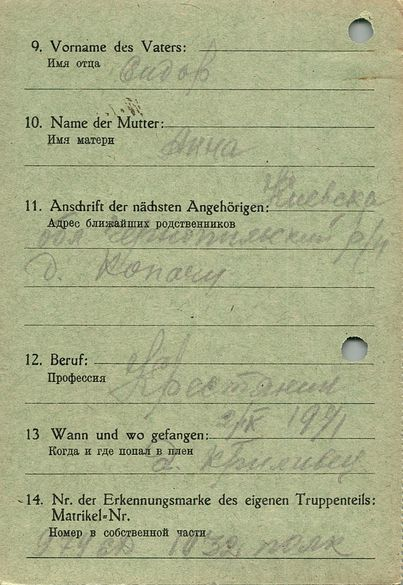 9. Vorname des Vaters:
Имя отца
Сидор
10. Name der Mutter:
Имя матери
Анна
Киевска
11. Anschrift der nächsten Angehörigen:
Адрес ближайших родственников
обл р/н
д. Копачи
12. Beruf:
Профессия
Крестянин
13 Wann und wo gefangen: 2/IX 1941
Когда и где попал в плен
д.
14. Nr. der Erkennungsmarke des eigenen Truppenteils:
Matrikel=Nr.
Номер в собственной части
полк